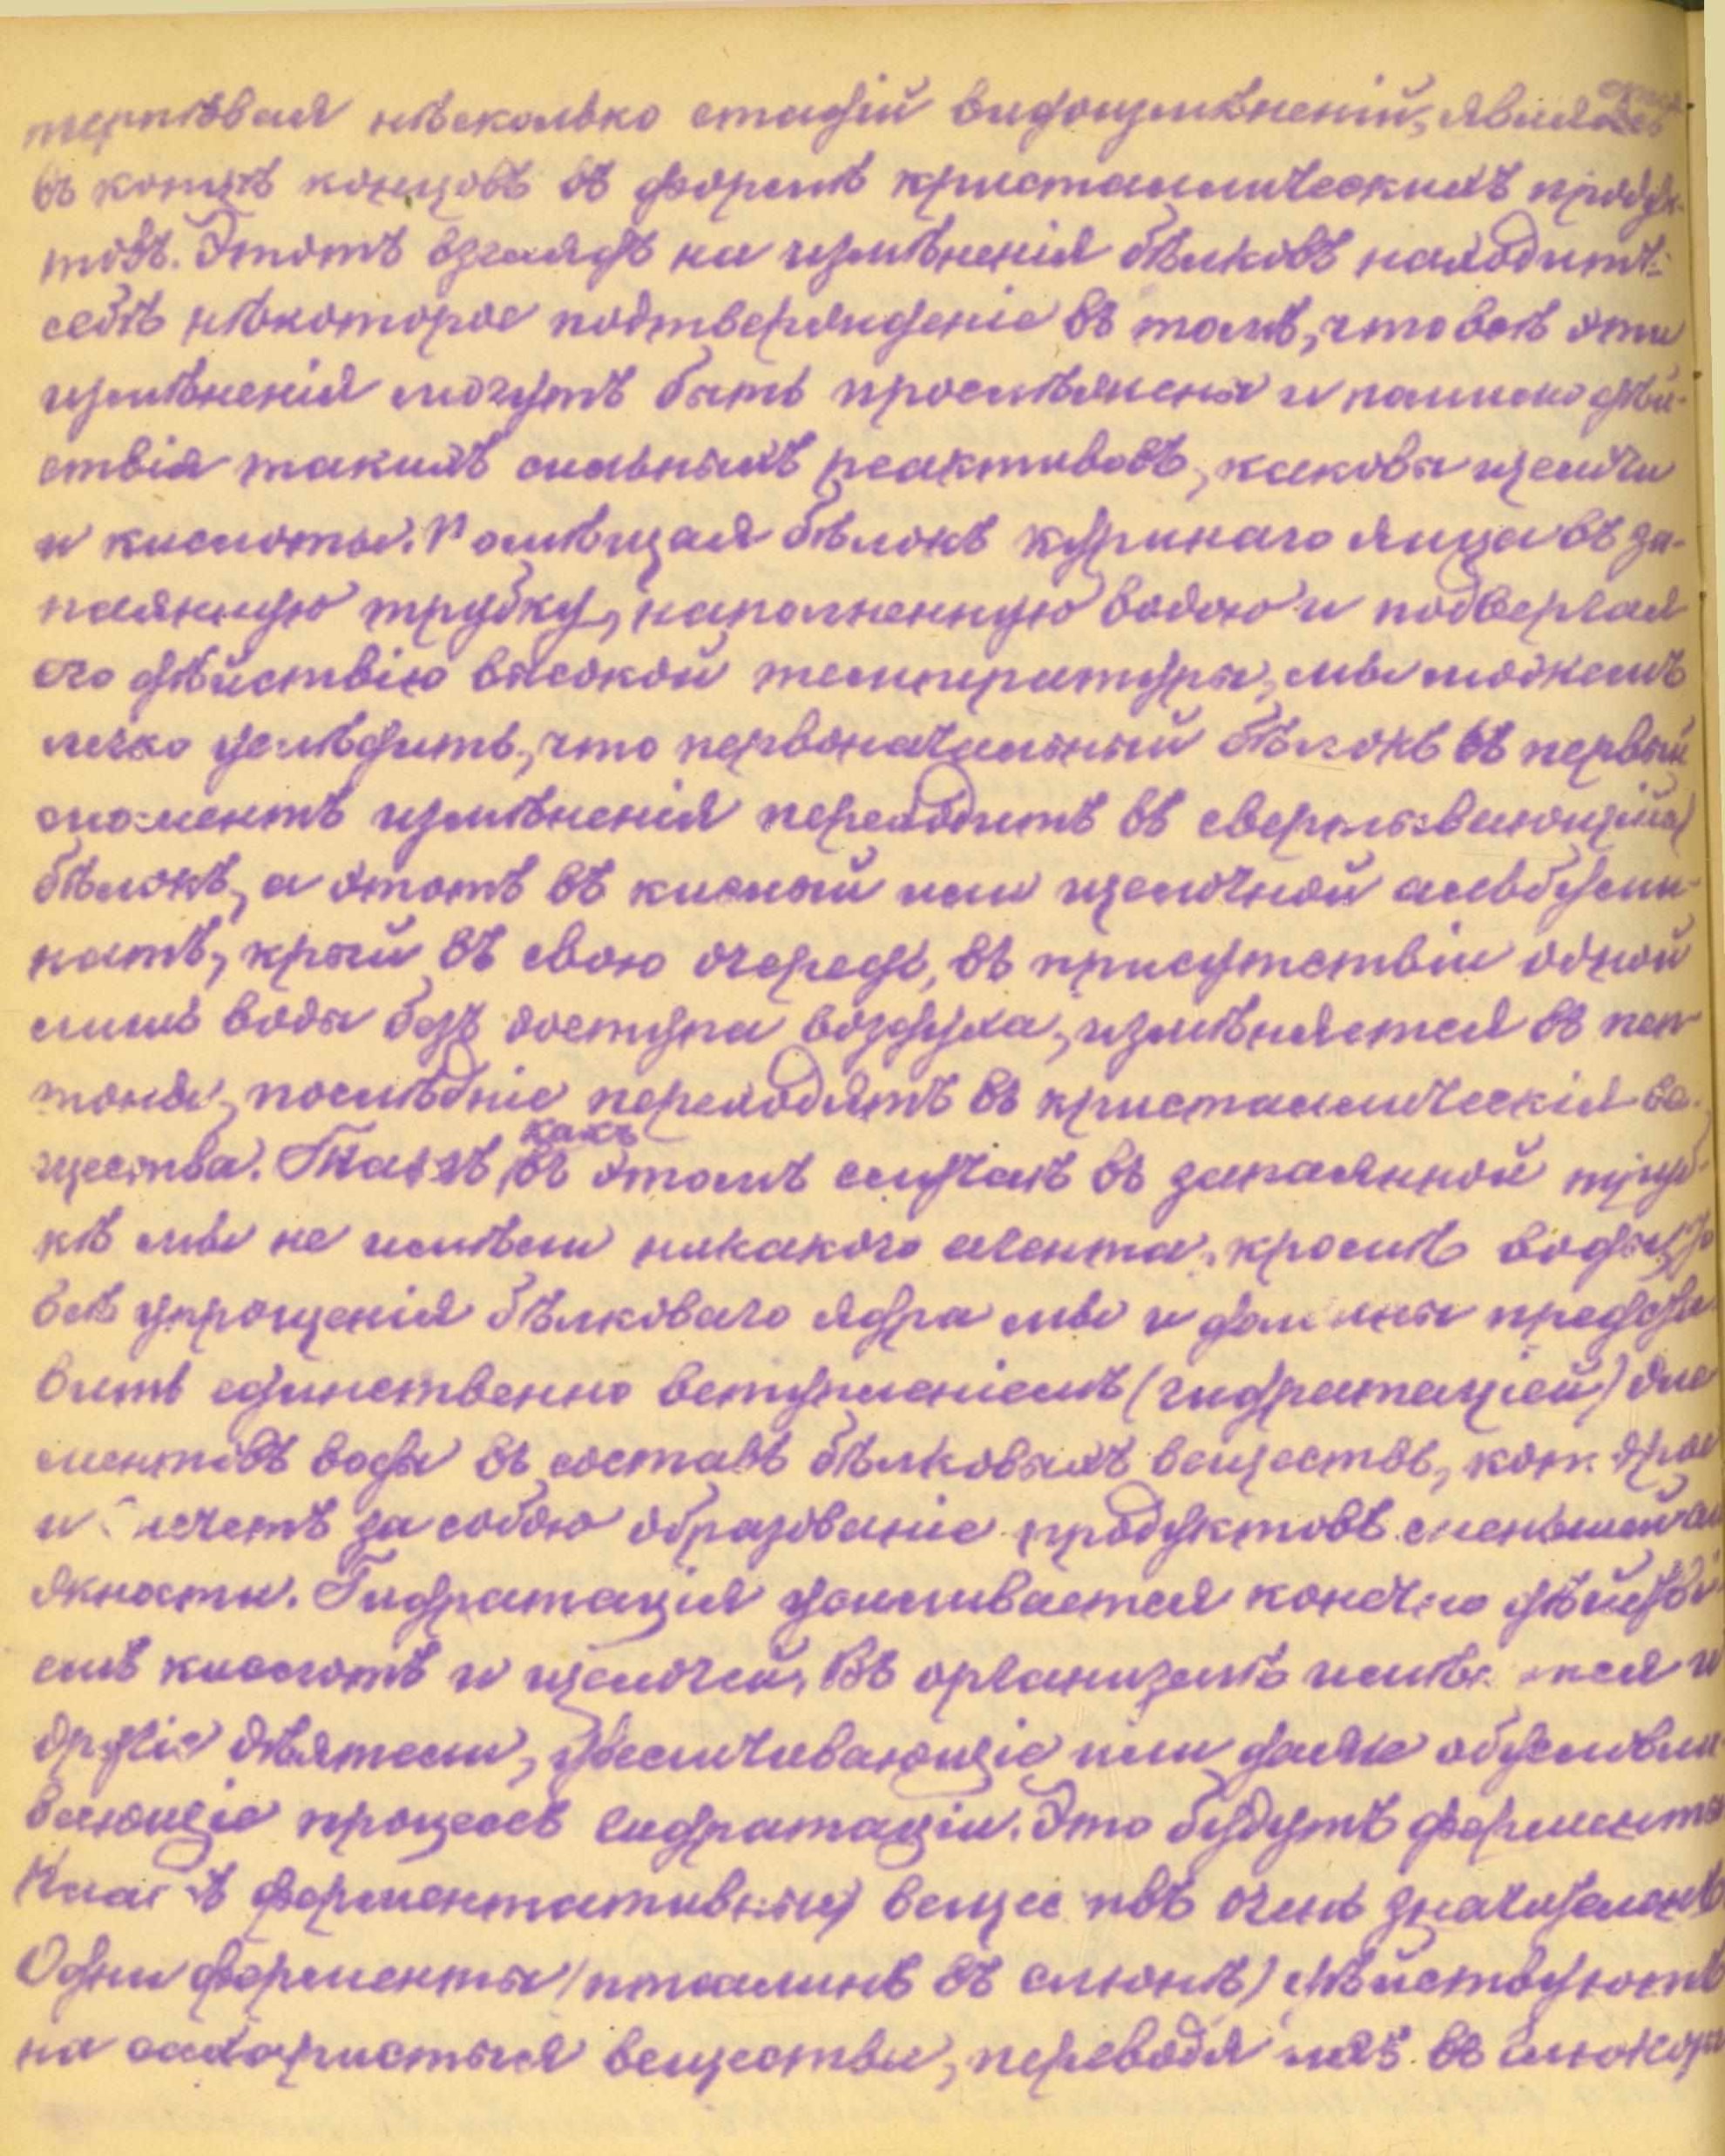 терпѣвая нѣсколько стадій видоизмѣненій, являясь
въ концѣ концовъ въ формѣ кристаллическихъ продук-
товъ. Этотъ взглядъ на измѣненія бѣлковъ находитъ
себѣ нѣкоторое подтвержденіе въ томъ, что всѣ эти
измѣненія могутъ быть прослѣжены и помимо дѣй-
ствія такихъ сильныхъ реактивовъ, каковы щелочи
и кислоты. Помѣщая бѣлокъ куринаго яица въ за-
паянную трубку, наполненную водою и подвергая
его дѣйствію высокой температуры, мы можемъ
легко услѣдить, что первоначальный бѣлокъ въ первый
моментъ измѣненія переходитъ въ свертывающійся
бѣлокъ, а этотъ въ кислый или щелочной альбуми-
натъ, крый въ свою очередь, въ присутствіи одной
лишь воды безъ доступа воздуха, измѣняется въ пеп-
тоны, послѣдніе переходятъ въ кристаллическія ве-
щества. Такъ какъ въ этомъ случаѣ въ запаянной труб-
кѣ мы не имѣемъ никакого агента, кромѣ воды, то
всѣ упрощенія бѣлковаго ядра мы и должны предста
вить единственно вступленіемъ (гидратаціей) эле
ментовъ воды въ составъ бѣлковыхъ веществъ, кот.
и влечетъ за собою образованіе продуктовъ меньшей
Гидратація усиливается конечно дѣйстві
емъ кислотъ и щелочей. Въ организмѣ имѣются и
другіе дѣятели, увеличивающіе или даже обусловли
вающіе процессъ гидратаціи. Это будутъ ферменты
Классъ ферментативныхъ веществъ очень значителенъ
Одни ферменты (птіалинъ въ слюнѣ) дѣйствуютъ
на сахаристыя вещества, переводя ихъ въ глюкозу